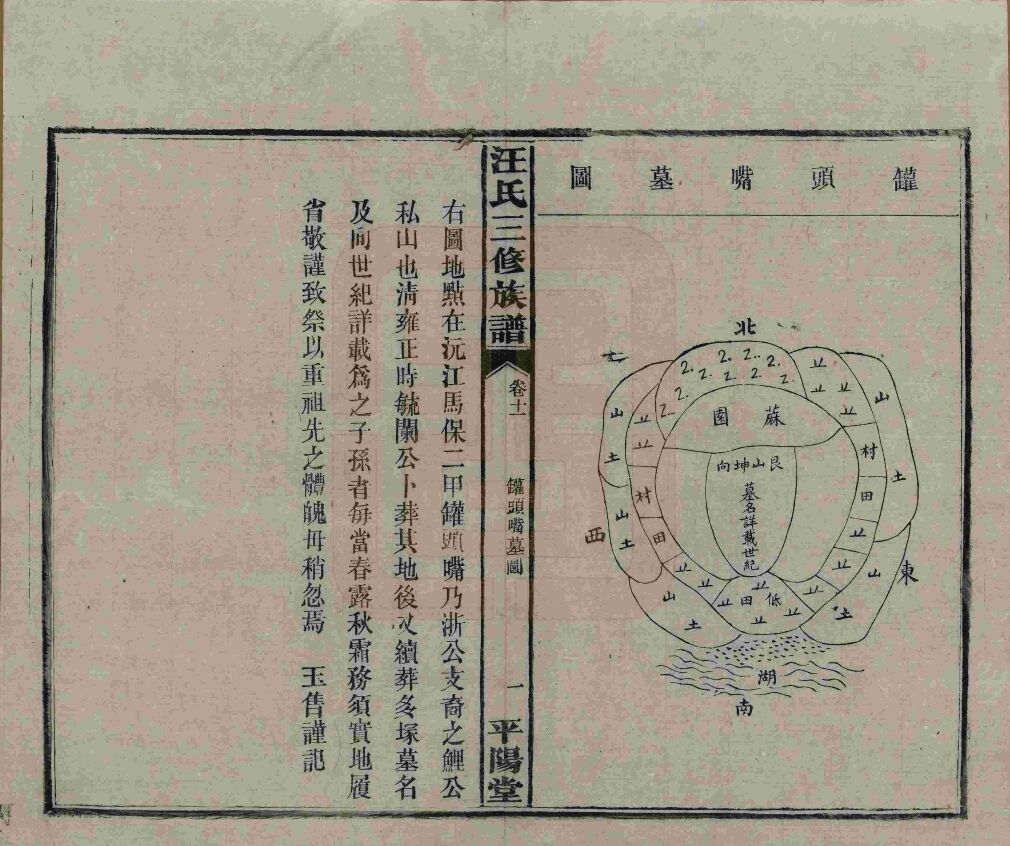 罐頭嘴墓圖
北
蘇園
艮山坤向
墓名詳載世紀
山土
山土
村田
山土
山土
村田
低田
東
西
湖
南
汪氏三修族譜
卷十一
罐頭嘴墓圖
一
平陽堂
右圖地點在沅江馬保二甲罐頭嘴乃浙公支裔之鯉公
私山也清雍正時毓蘭公卜葬其地後又續葬多塚墓名
及向世紀詳載為之子孫者每當春露秋霜務須實地履
省敬謹致祭以重祖先之體魄毋稍忽焉　玉售謹記